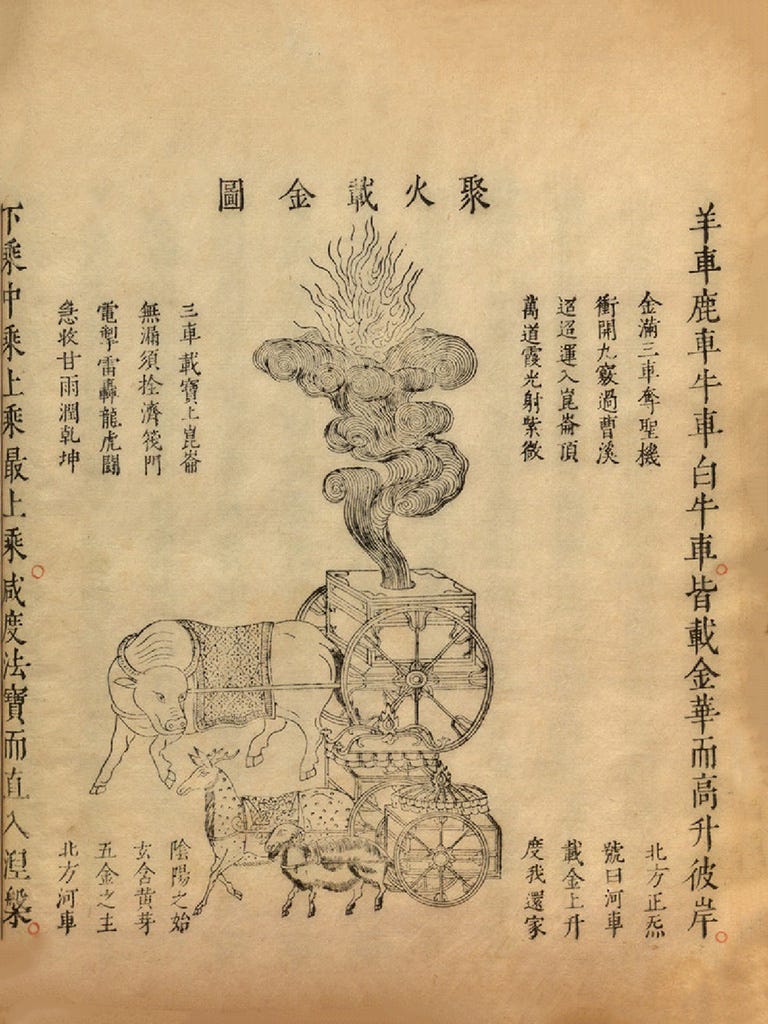 聚火載金圖
羊車鹿車牛車白牛車。皆載金華而高升彼岸。
金滿三車奪聖機
衝開九竅過曹溪
迢迢運入崑崙頂
萬道霞光射紫微
北方正炁
號曰河車
載金上升
度我還家
三車載寶上崑崙
無漏須拴濟筏門
電掣雷轟龍虎鬪
急收甘雨潤乾坤
陰陽之始
玄含黃芽
五金之主
北方河車
下乘中乘上乘最上乘。咸度法寶而直入涅槃。